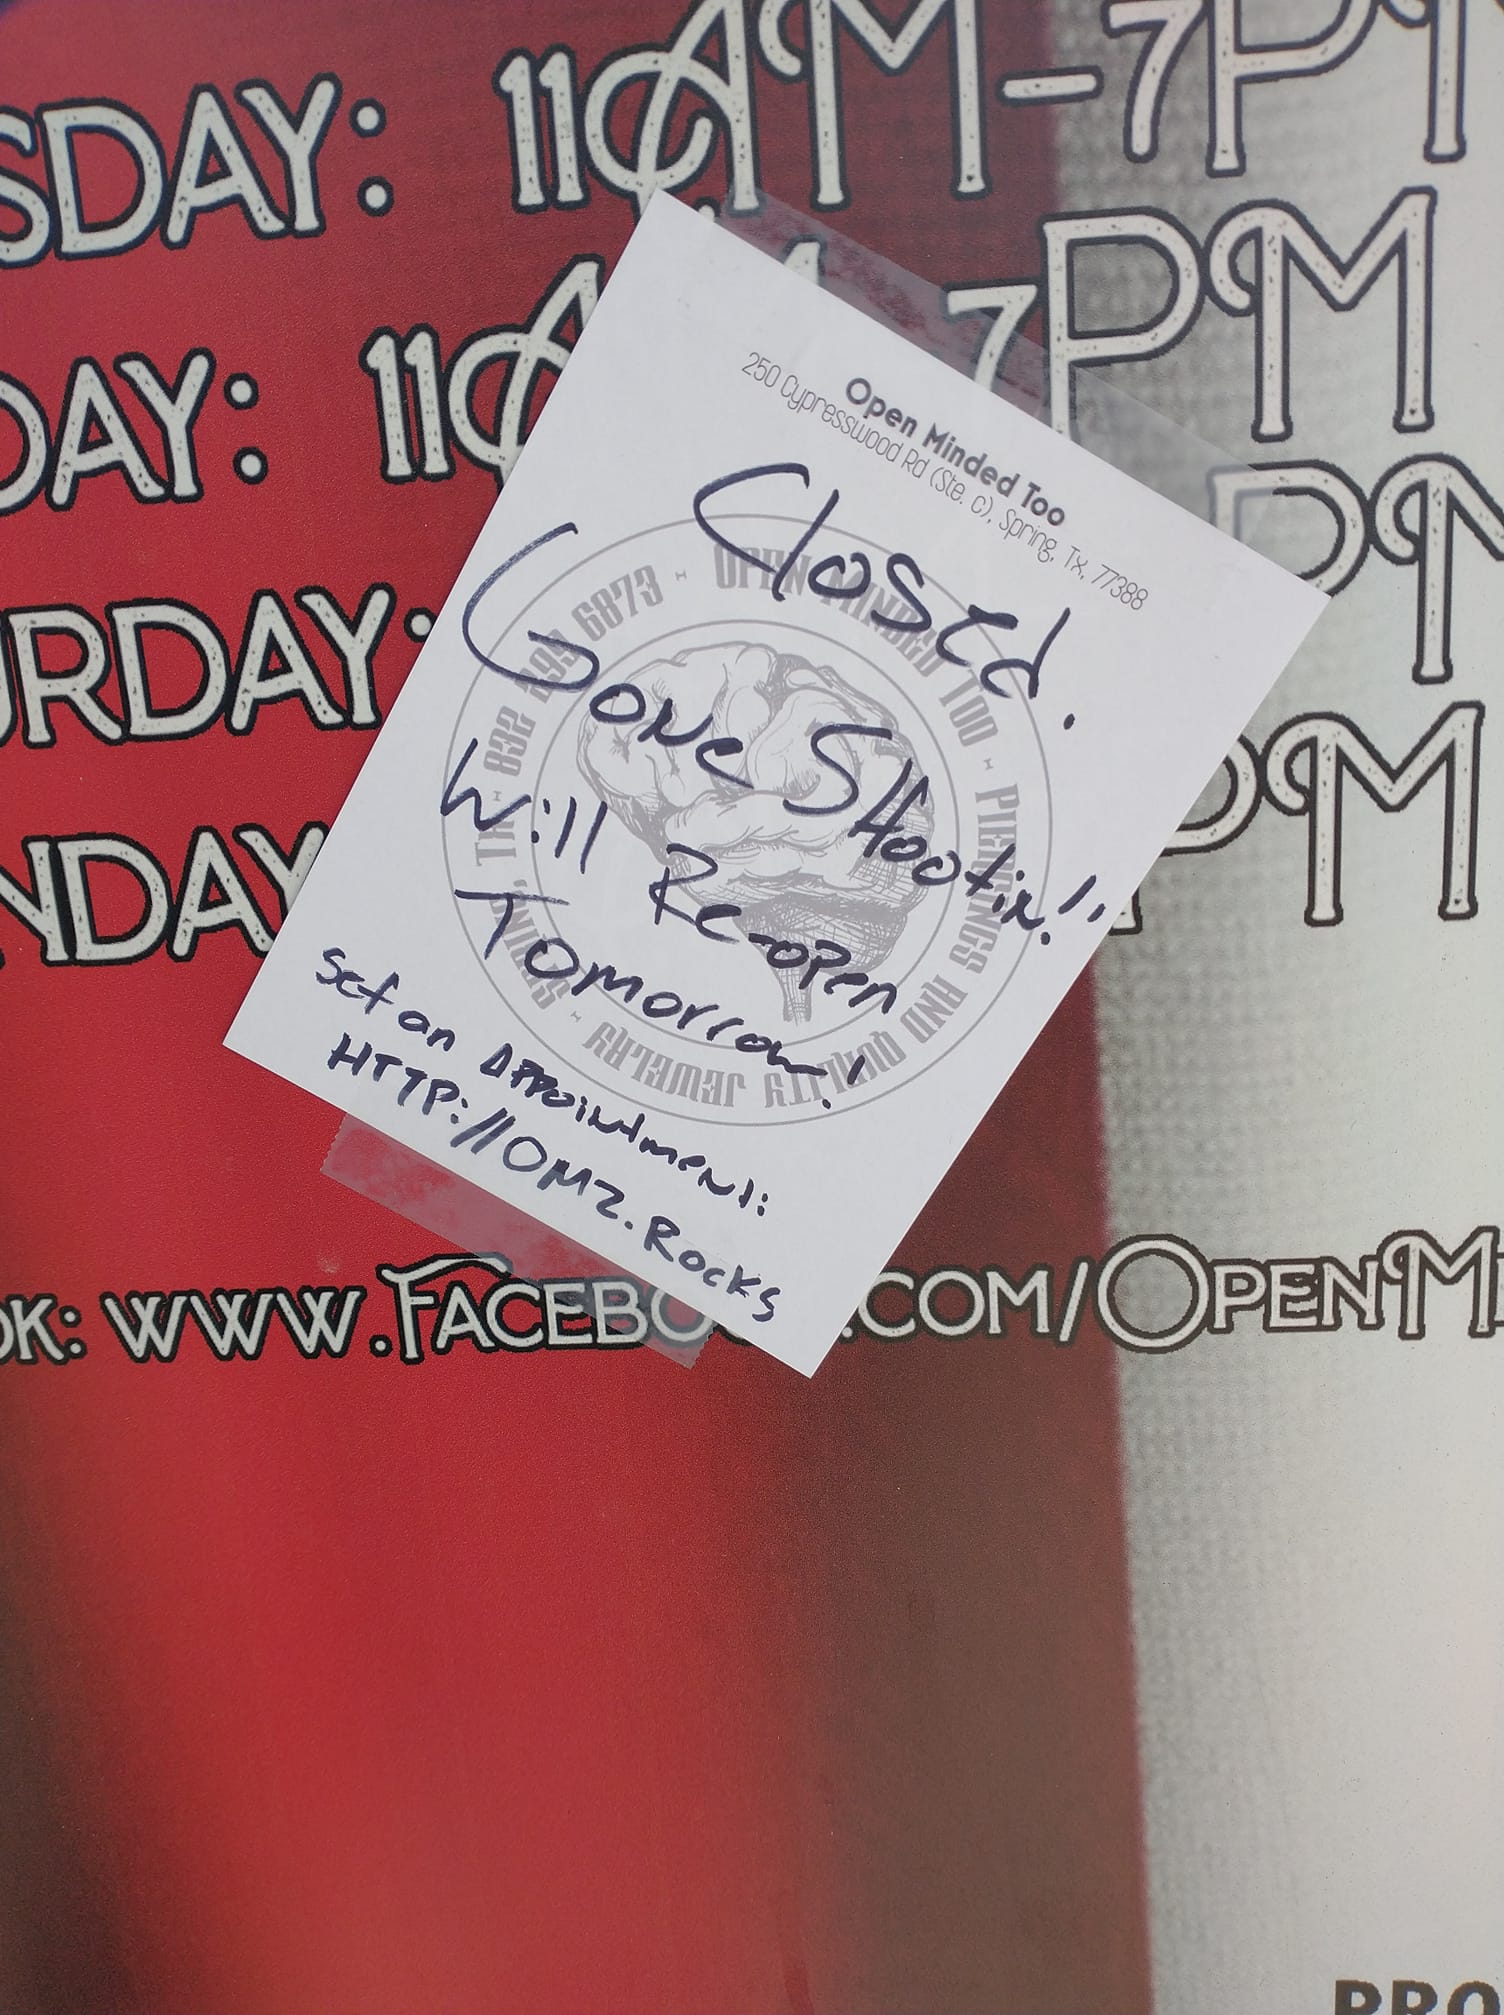 SDAY: 11AM-7PM
DAY: 11A 7PM
URDAY: PM
NDAY PM
Open Minded Too
250 Cypresswood Rd (Ste. C), Spring, Tx, 77388
Closed.
Gone SHootin!!
Will Re-open
Tomorrow!
Set an Appointment:
HTTP://OM2.Rocks
OPEN MINDED TOO · PIERCINGS AND QUALITY JEWELRY · SPRING, TX · 832 299 6873 ·
OK: WWW.FACEBO .COM/OPENMI
PRO